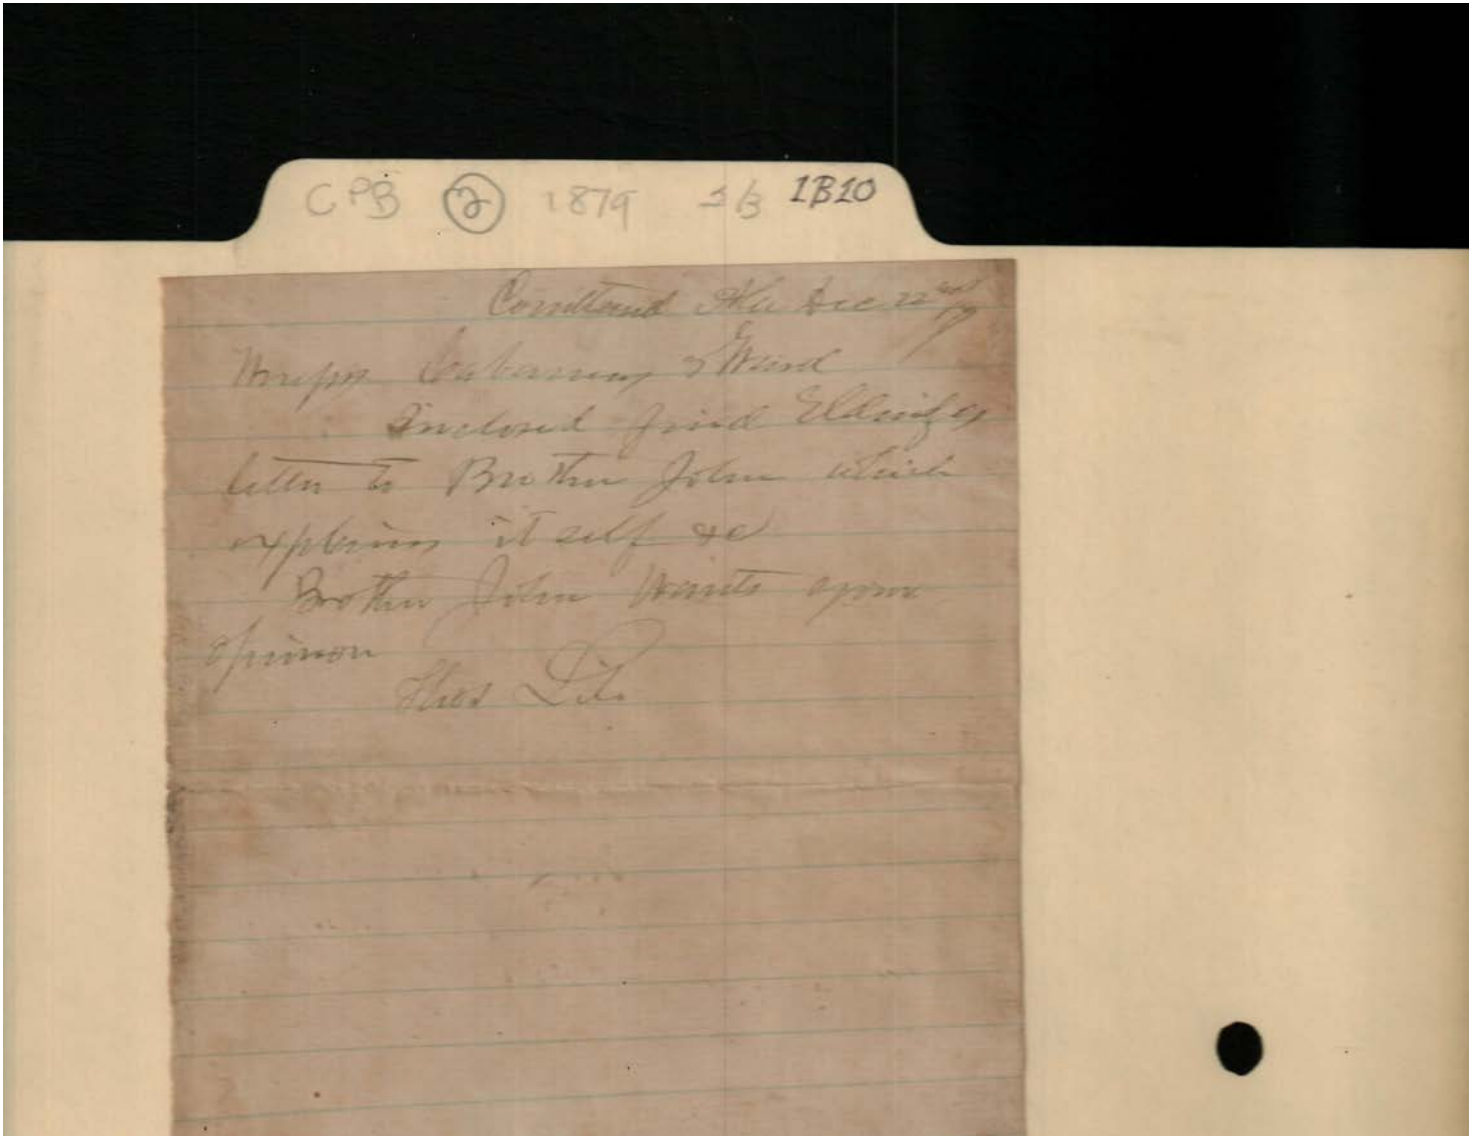 CPB 2 1879 1B 1B10
Courtland Ala Dec 22nd
Messrs Cabaniss & Ward
Inclosed find Eldridges
letter to Brother John which
explains it self &c
Brother John Wants your
opinion
Thos